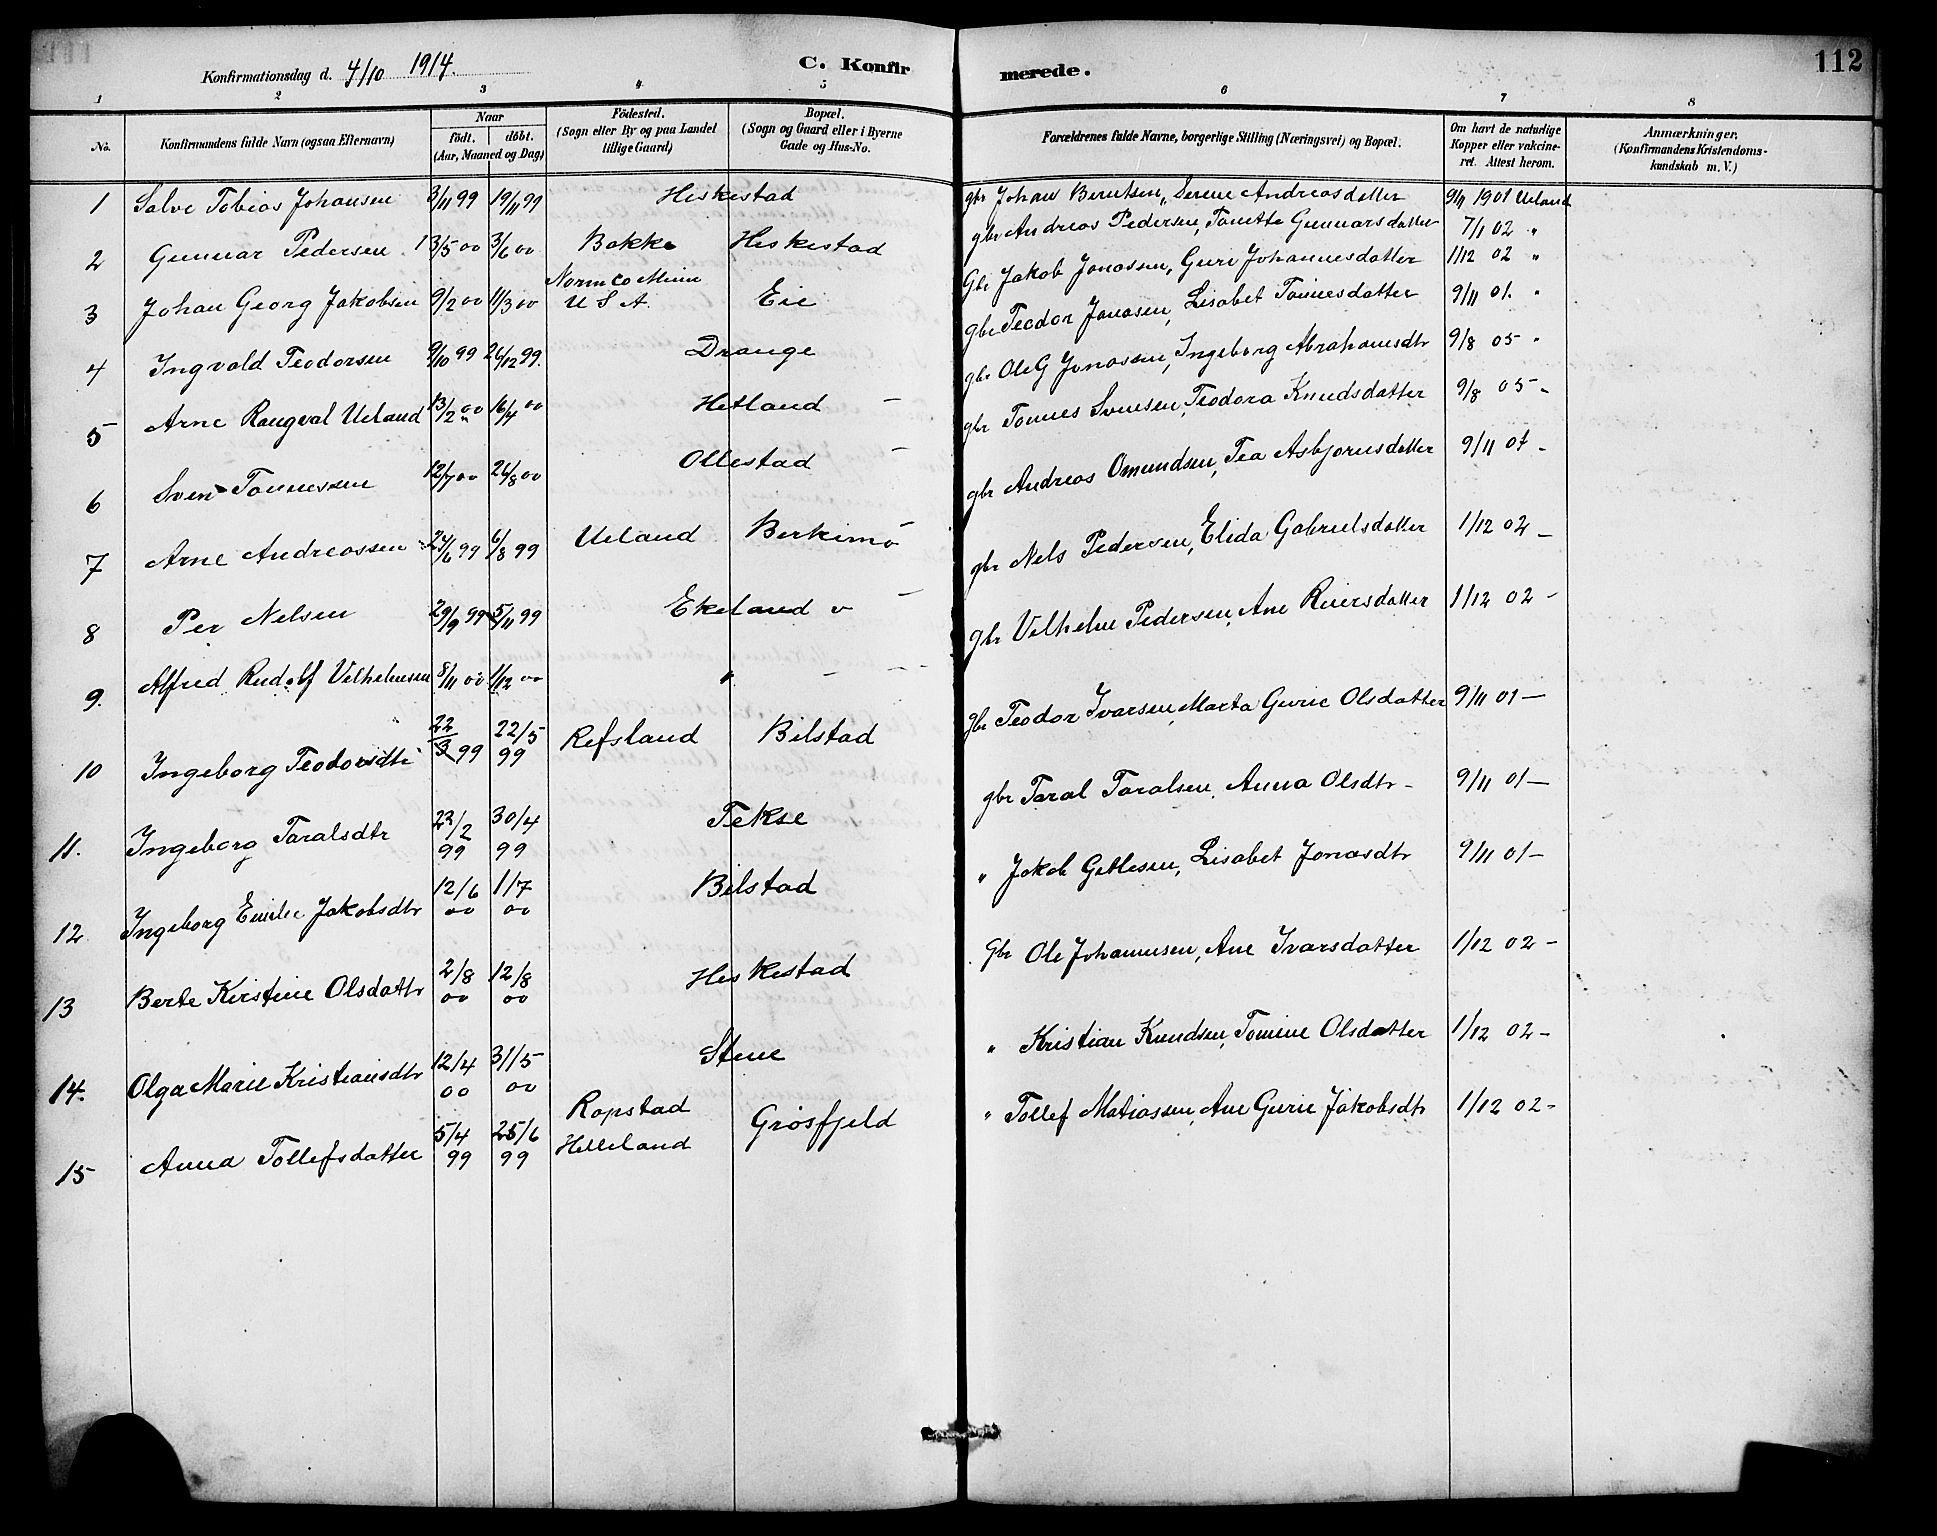 112
Konfirmationsdag d. 4/10 1914.
C. Konfirmerede.
1 2 3 4 5 6 7 8
No.
Konfirmandens fulde Navn (ogsaa Efternavn)
Naar
födt. döbt.
(Aar, Maaned og Dag)
Födested.
(Sogn eller By og paa Landet
tillige Gaard)
Bopæl.
(Sogn og Gaard eller i Byerne
Gade og Hus-No.
Forældrenes fulde Navne, borgerlige Stilling (Næringsvei) og Bopæl.
Om havt de naturlige
Kopper eller vakcine-
ret. Attest herom.
Anmærkninger.
(Konfirmandens Kristendoms-
kundskab m. V.)
1 Salve Tobias Johansen 3/11 99 19/11 99 Heskestad gbr Johan Berntsen, Serine Andreasdatter 9/11 1901 Ueland
2 Gunnar Pedersen 13/5 00 3/6 00 Bakke Heskestad gbr Andreas Pedersen, Tonette Gunnarsdatter 7/1 02 "
3 Johan Georg Jakobsen 9/2 00 11/3 00 Norm Co Minn
U S A. Eie Gbr Jakob Jonassen, Guri Johannesdatter 1/12 02 "
4 Ingvald Teodorsen 9/10 99 26/12 99. Drange gbr Teodor Jonasen, Lisabet Tonnesdatter 9/11 01. "
5 Arne Rangval Ueland 13/2 00 16/4 00 Hetland - gbr Ole G Jonassen, Ingeborg Abrahamsdtr 9/8 05 "
6 Sven Tonnessen 12/7 00 26/8 00 Ollestad - gbr Tonnes Svensen, Teodora Knudsdatter 9/8 05 -
7 Arne Andreassen 24/6 99 6/8 99 Ueland Berkimo gbr Andreas Omundsen, Tea Asbjornsdatter 9/11 01 -
8 Per Nelsen 29/9 99 5/11 99 Ekeland v - gbr Nels Pedersen, Elida Gabrielsdatter 1/12 02 -
9. Alfred Rudolf Velhelmsen 8/11 00 1/12 00 " - gbr Velhelm Pedersen, Ane Reiersdatter 1/12 02 -
10 Ingeborg Teodorsdtr 22/3 99 22/5 99 Refsland Bilstad gbr Teodor Ivarsen, Marta Gurie Olsdatter 9/11 01 -
11. Ingeborg Taralsdtr 22/2 99 30/4 99 Tekse gbr Taral Taralsen, Anna Olsdtr - 9/11 01 -
12 Ingeborg Emilie Jakobsdtr 12/6 00 1/7 00 Bilstad " Jakob Getlesen, Lisabet Jonasdtr 9/11 01 -
13 Berte Kirstine Olsdattr 2/8 00 12/8 00 Heskestad Gbr Ole Johannesen, Ane Ivarsdatter 1/12 02 -
14. Olga Marie Kristiansdtr 12/4 00 31/5 00 Stene " Kristian Knudsen, Tomine Olsdatter 1/12 02 -
15 Anna Tollefsdatter 5/4 99 25/6 99 Ropstad
Helleland Grosfjeld " Tollef Matiassen, Ane Gurie Jakobsdtr 1/12 02 -